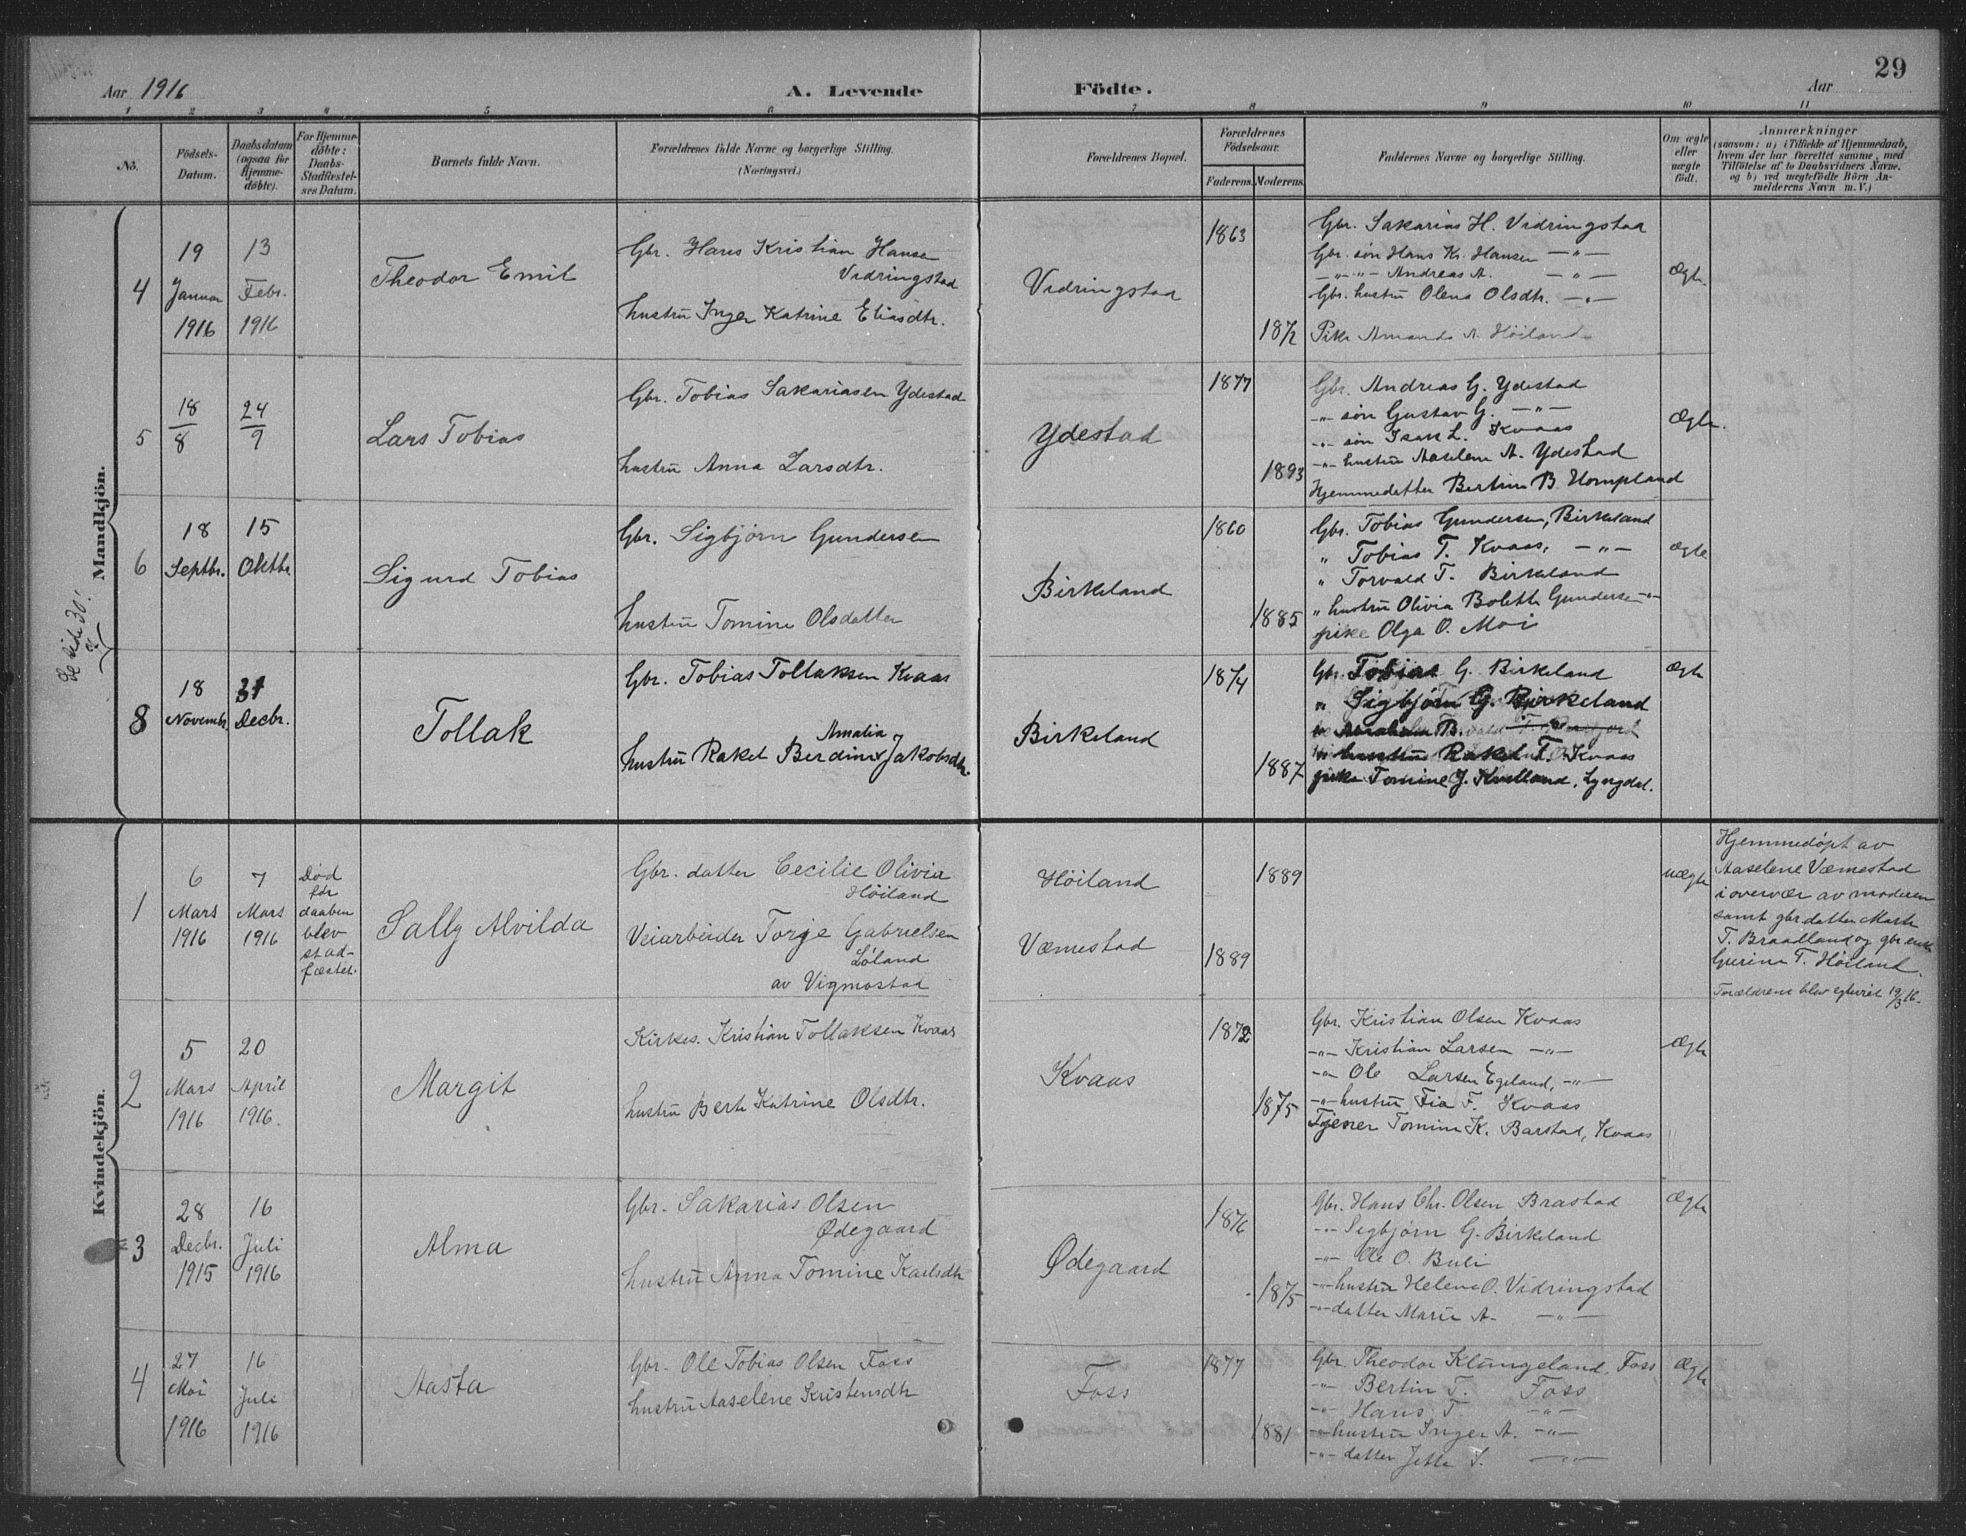 29
Aar 1916
A. Levende
Födte.
Aar
1 2 3 4 5 6 7 8 9 10 11
No.
Födsels-Datum.
Daabsdatum (ogsaa för Hjemmedöbte).
For Hjemmedöbte: Daabs-Stadfæstelses Datum.
Barnets fulde Navn.
Forældrenes fulde Navne og borgerlige Stilling.
(Næringsvei.)
Forældrenes Bopæl.
Forældrenes Födselsaar.
Faderens. Moderens.
Faddernes Navne og borgerlige Stilling.
Om ægte eller uægte födt.
Anmærkninger
(saasom: a) i Tilfælde af Hjemmedaab, hvem der har forrettet samme, med Tilföielse af to Daabsvidners Navne, og b) ved uægtefödte Börn Anmelderens Navn m. V.)
Mandkjön.
Se side 30!
4
19 Januar 1916
13 Febr. 1916
Theodor Emil
Gbr. Hans Kristian Hansen
Vidringstad
hustru Inger Katrine Eliasdtr.
Vidringstad
1863
1872
Gbr. Sakarias H. Vidringstad
Gbr. søn Hans Kr. Hansen —"—
—"—"— Andreas A. —"—
Gbr. hustru Olena Olsdtr. —"—
Pike Amanda A. Høiland
Ægte
5
18/8
24/9
Lars Tobias
Gbr. Tobias Sakariasen Ydestad
hustru Anna Larsdtr.
Ydestad
1877
1893
Gbr. Andreas G. Ydestad
—"— søn Gustav G. —"—
—"— søn Isak L. Kvaas
—"— hustru Aaselene A. Ydestad
Hjemmedatter Bertine B. Hompland
Ægte.
6
18 Septbr.
15 Oktbr
Sigurd Tobias
Gbr. Sigbjørn Gundersen
hustru Tomine Olsdatter
Birkeland
1860
1885
Gbr. Tobias Gundersen, Birkeland
" Tobias T. Kvaas, —"—
" Torvald T. Birkeland
" hustru Olivia Bolette Gundersen —"—
pike Olga O. Moi
Ægte
8
18 Novembr.
31 Decbr.
Tollak
Gbr. Tobias Tollaksen Kvaas
Amalia
hustru Rakel Berdine Jakobsdtr.
Birkeland
1874
1887
Gbr. Tobias G. Birkeland
" Sigbjørn G. Birkeland
" Abraham B.
" hustru Rakel T. Kvaas
pike Tomine J. Kvelland, Lyngdal.
Ægte
Kvindekjön.
1
6 Mars 1916
7 Mars 1916
Død før daaben blev stadfæstet.
Sally Alvilda
Gbr. datter Cecilie Olivia
Høiland
Veiarbeider Torje Gabrielsen
Løland
av Vigmostad
Høiland
Væmestad
1889
1889
uægte
Hjemmedøpt av
Aaselene Væmestad
i overvær av moderen
samt gbr datter Marte
T. Braadland og gbr enke
Gurine T. Høiland.
Forældrene blev egteviet 19/3 16.
2
5 Mars 1916
20 April 1916.
Margit
Kirkes. Kristian Tollaksen Kvaas
hustru Berte Katrine Olsdtr.
Kvaas
1872
1875
Gbr. Kristian Olsen Kvaas
—"— Kristian Larsen —"—
—"— Ole Larsen Egeland, —"—
—"— hustru Fia F. Kvaas
Tjener Tomine K. Barstad, Kvaas
Ægte
3
28 Decbr. 1915
16 Juli 1916
Alma
Gbr. Sakarias Olsen
Ødegaard
hustru Anna Tomine Karlsdtr
Ødegaard
1876
1875
Gbr. Hans Chr. Olsen Brastad
—"— Sigbjørn G. Birkeland
—"— Ole O. Buli
—"— hustru Helene O. Vidringstad
—"— datter Marie A. —"—
Ægte
4
27 Mai 1916
16 Juli 1916
Aasta
Gbr. Ole Tobias Olsen Foss
hustru Aaselene Kristensdtr
Foss
1877
1881
Gbr. Theodor Klungeland, Foss
—"— Bertin T. Foss
—"— Hans T. —"—
—"— hustru Inger A. —"—
—"— datter Jette S. —"—
Ægte